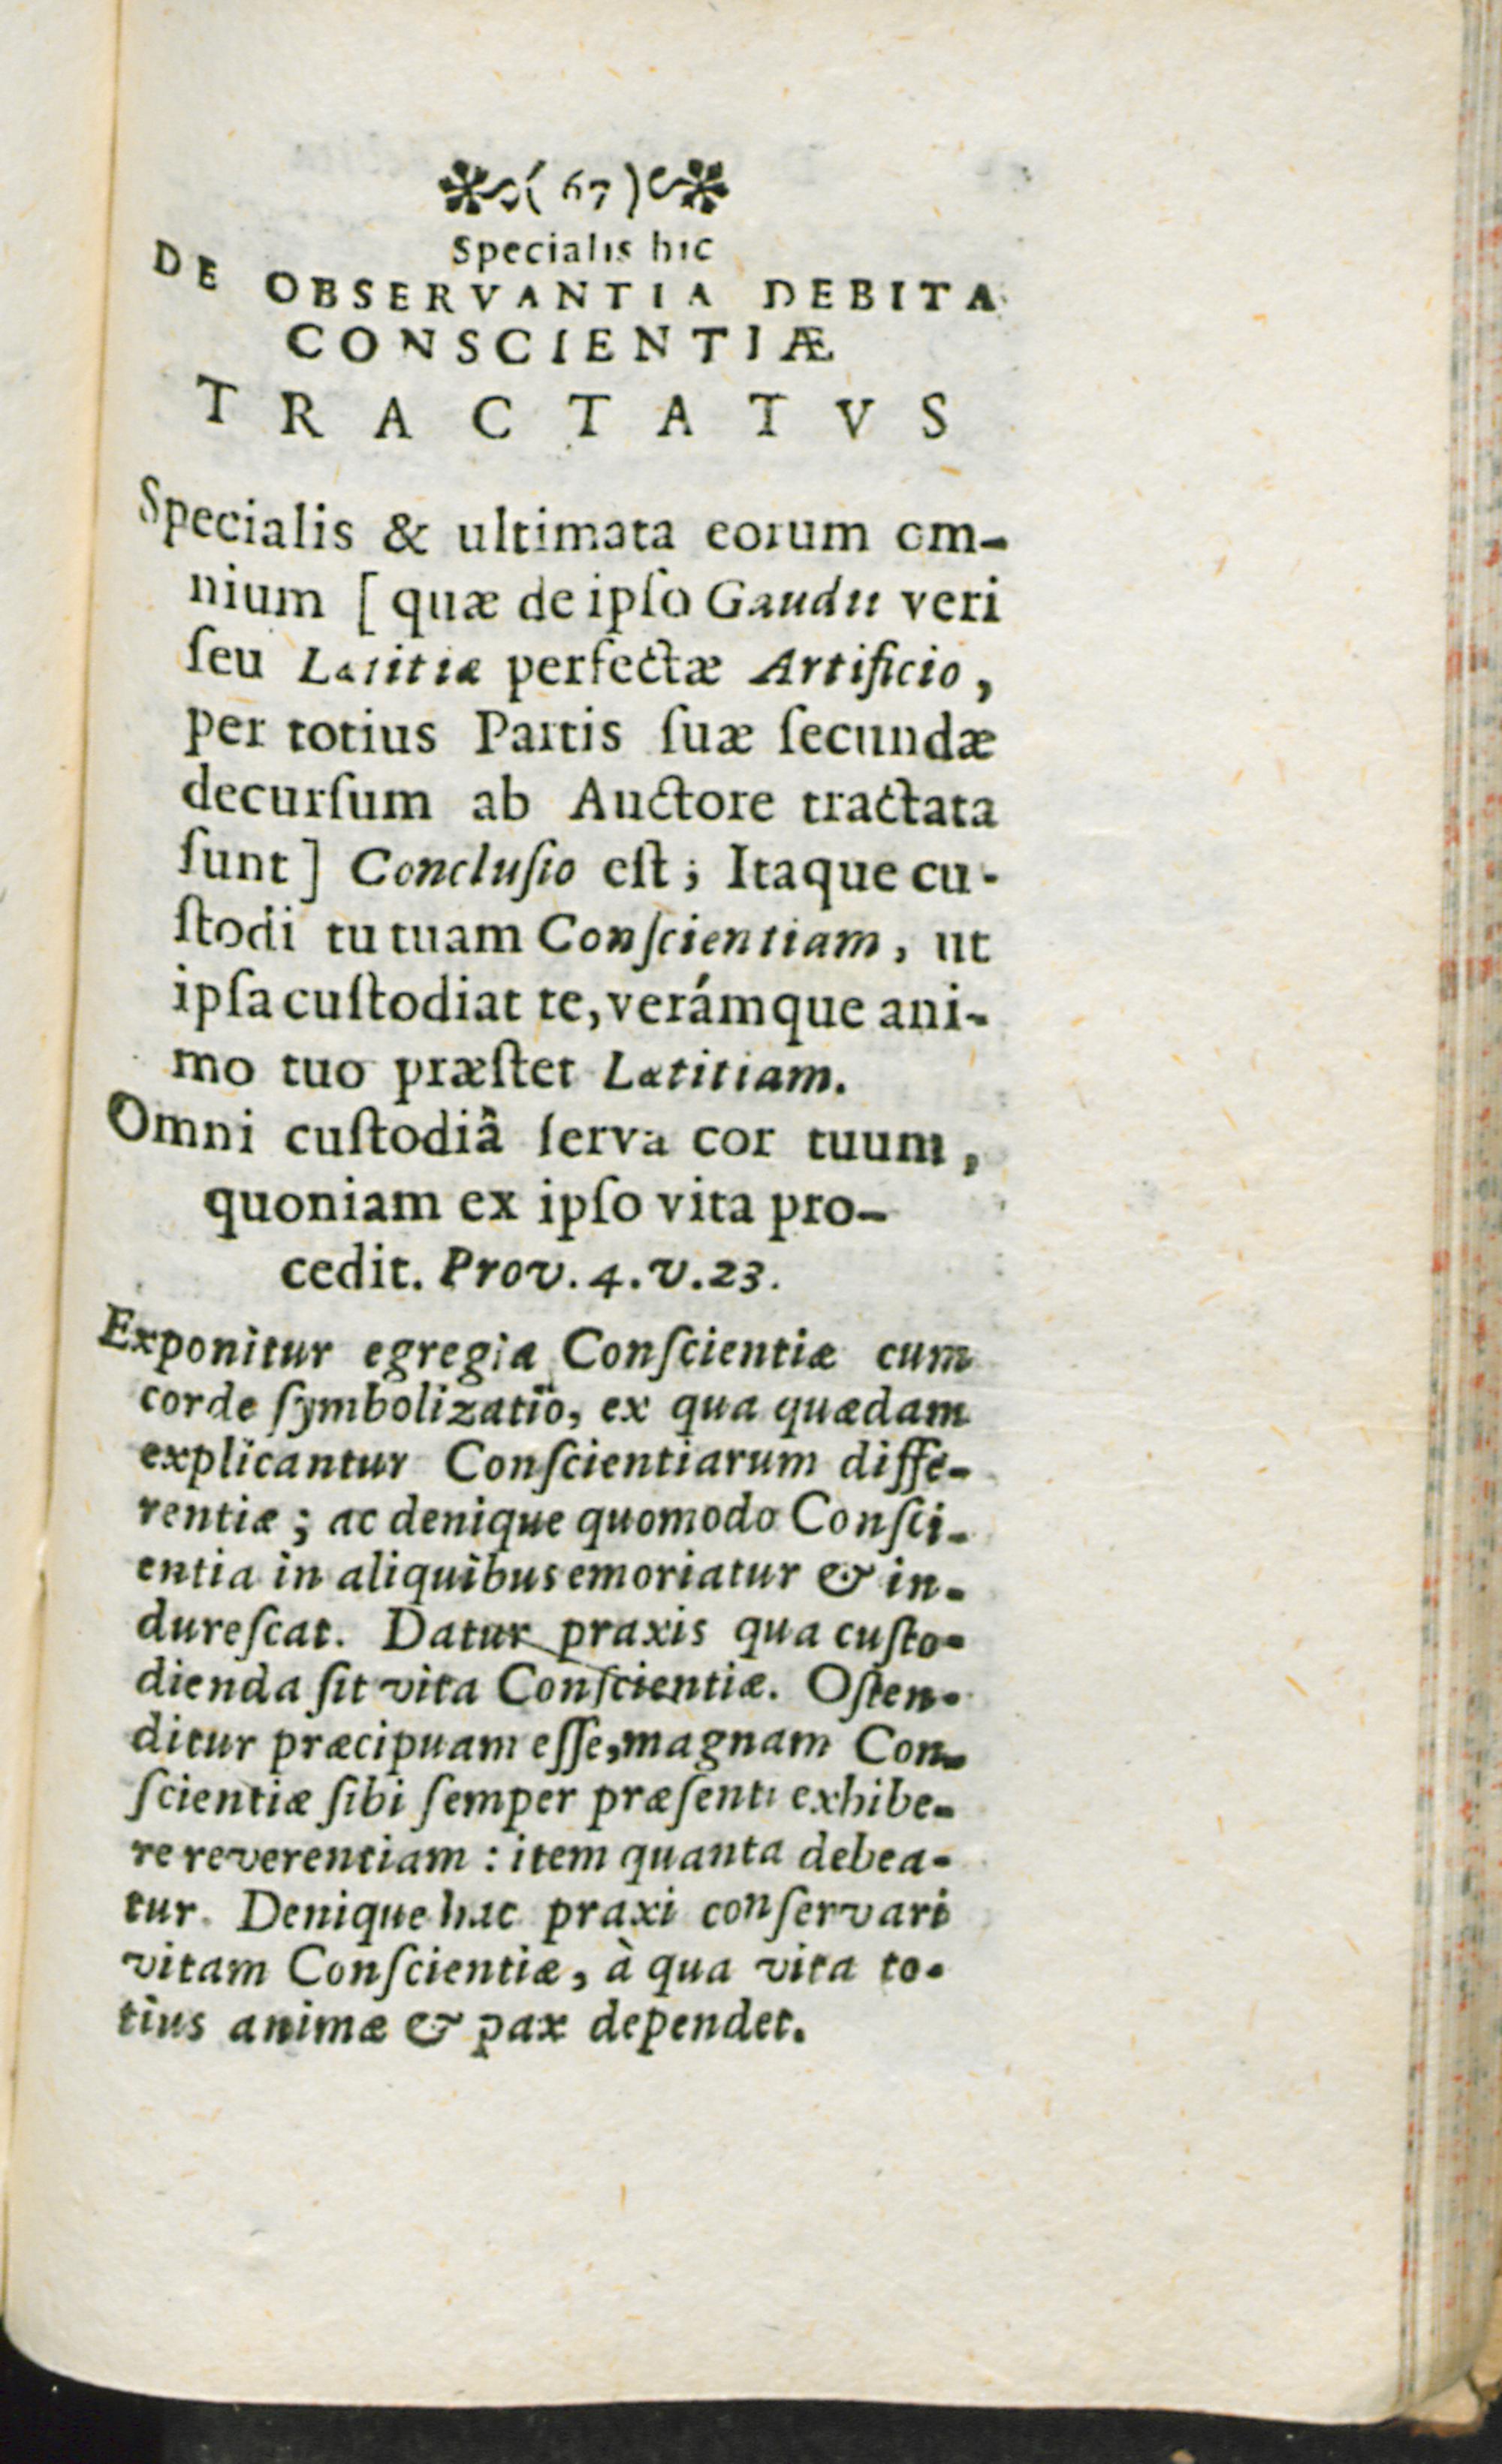 (67)
Specialis hic
DE OBSERVANTIA DEBITA
CONSCIENTIÆ
TRACTATVS
Specialis & ultimata eorum om-
nium [ quæ de ipſo Gaudii veri
ſeu Lætitiæ perfectæ Artificio,
per totius Partis ſuæ ſecundæ
decurſum ab Auctore tractata
ſunt] Concluſio eſt; Itaque cu-
ſtodi tu tuam Conſcientiam, ut
ipſa cuſtodiat te, verámque ani-
mo tuo præſtet Lætitiam.
Omni cuſtodiâ ſerva cor tuum,
quoniam ex ipſo vita pro-
cedit. Prov. 4. v. 23.
Exponitur egregia Conſcientiæ cum
corde ſymbolizatio, ex qua quædam
explicantur Conſcientiarum diffe-
rentiæ; ac denique quomodo Conſci-
entia in aliquibus emoriatur & in-
dureſcat. Datur praxis qua cuſto-
dienda ſit vita Conſcientiæ. Oſten-
ditur præcipuam eſſe, magnam Con-
ſcientiæ ſibi ſemper præſenti exhibe-
re reverentiam : item quanta debea-
tur. Denique hac praxi conſervari
vitam Conſcientiæ, à qua vita to-
tius animæ & pax dependet.